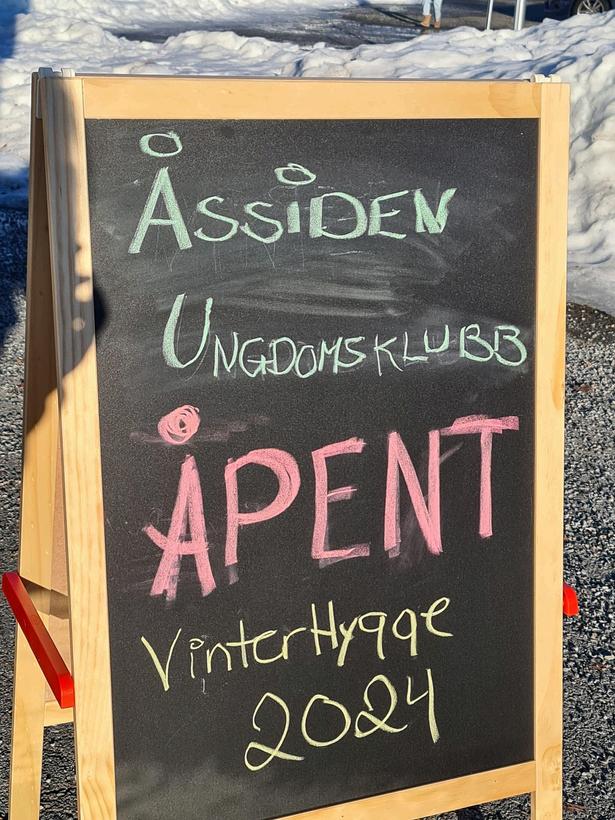 ÅSSiDEN
UNGDOMSKLUBB
ÅPENT
VinterHygge
2024